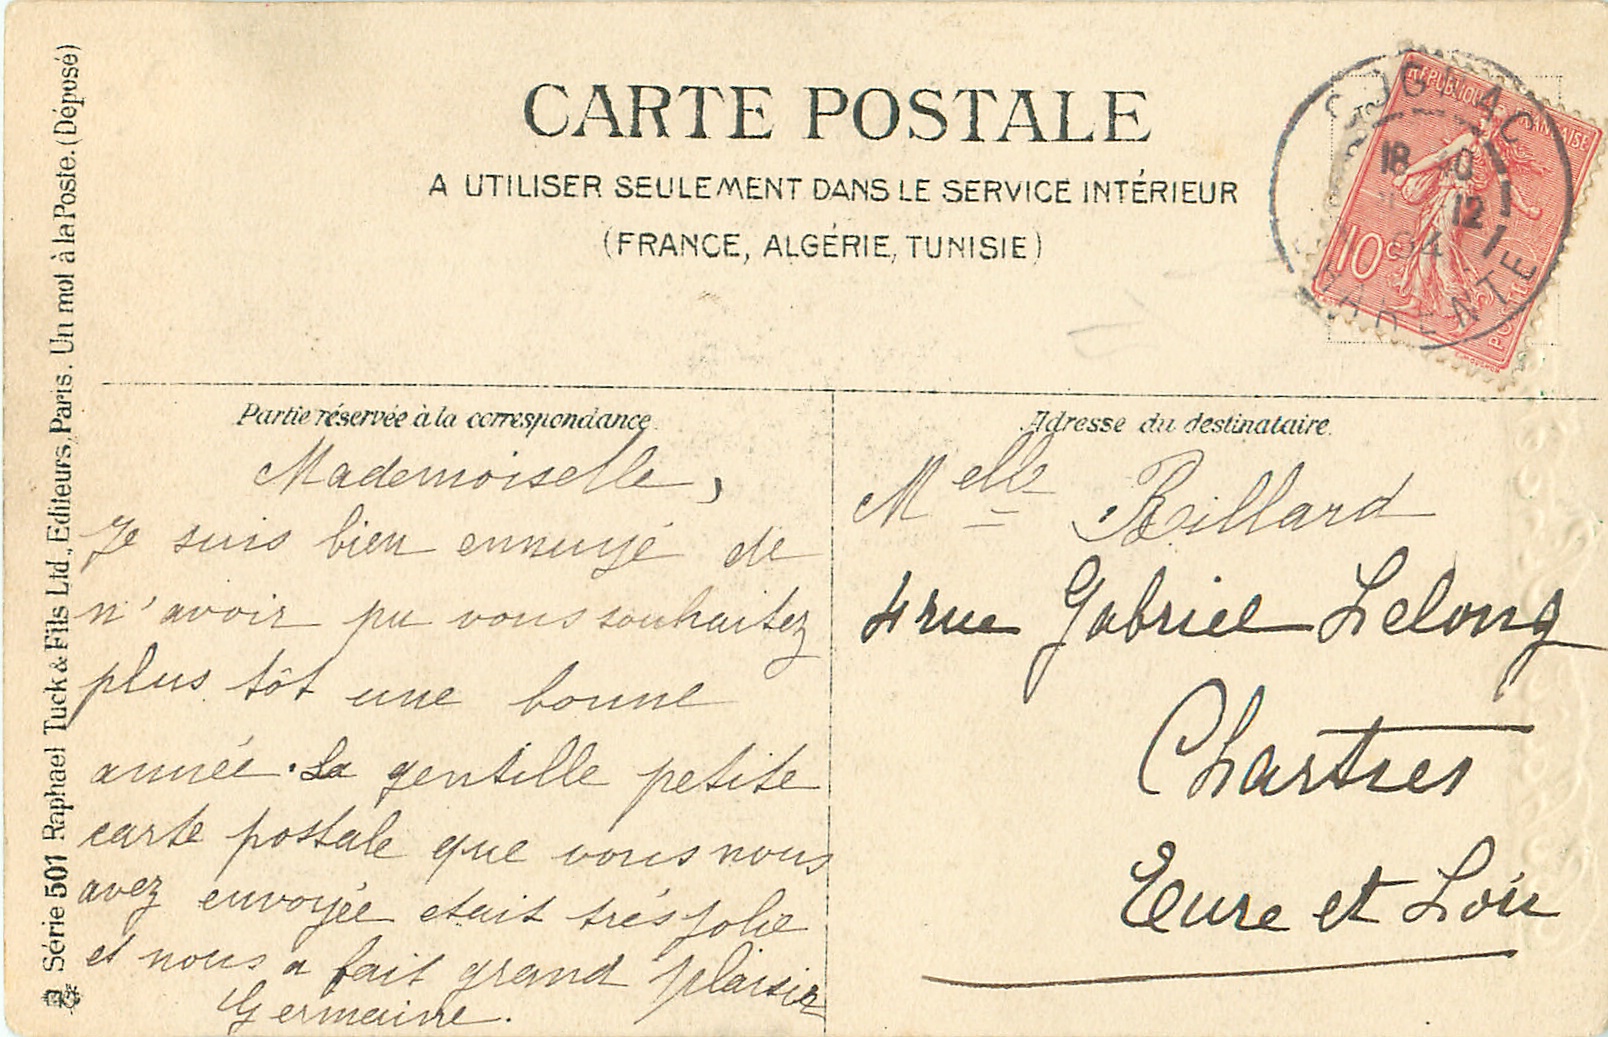 CARTE POSTALE
A UTILISER SEULEMENT DANS LE SERVICE INTÉRIEUR
(FRANCE, ALGÉRIE, TUNISIE)
RÉPUBLIQUE FRANÇAISE
10c
POSTES
18 40
12
04
CHARENTE
Série 501 Raphael Tuck & Fils Ltd., Editeurs, Paris. Un mot à la Poste. (Déposé)
Partie réservée à la correspondance
Mademoiselle,
Je suis bien ennuyé de
n'avoir pu vous souhaitez
plus tôt une bonne
année. La gentille petite
carte postale que vous nous
avez envoyée etait très jolie
et nous a fait grand plaisir
Germaine.
Adresse du destinataire.
Melle Billard
4 rue Gabriel Lelong
Chartres
Eure et Loir